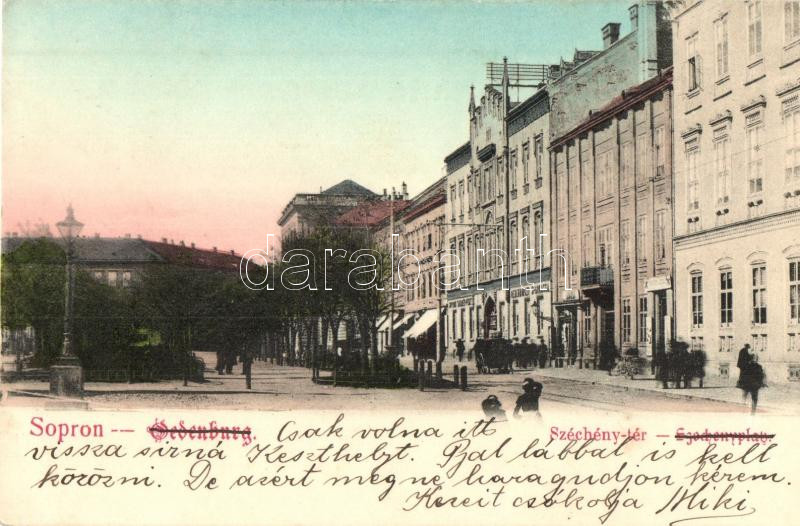 darabanth.com
Sopron -- Oedenburg.
Széchény-tér - Szechenyplatz.
Csak volna itt
vissza sírná Keszthelyt. Gal lábbal is kell
közözni. De azért meg ne haragudjon kérem.
Kezeit csókolja Miki